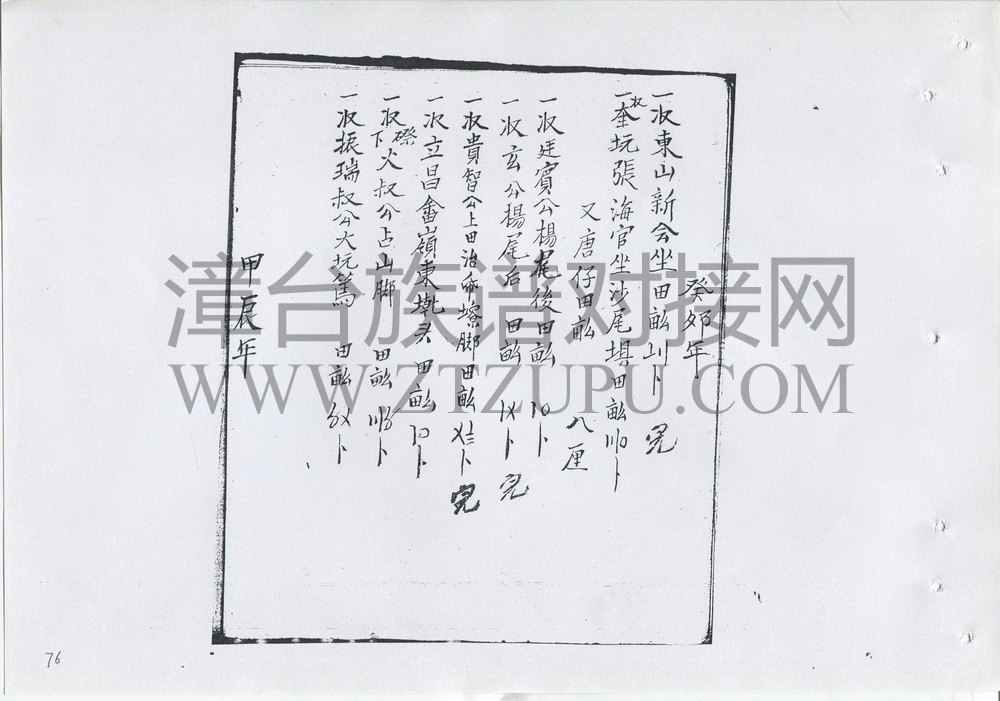 癸卯年
一收東山新会坐田畝 〢〡卜 完
一收奎坑張海官坐沙尾埧田畝 〣〇卜
又唐仔田畝 八厘
一收廷賓公楊尾後田畝 〡〇卜
一收玄公楊尾后田畝 〡〤卜 完
一收貴智公上田治 寮脚田畝 卜 完
一收立昌畬嶺東 田畝 卜
一收磜下火叔公占山脚田畝 卜
一收振瑞叔公大坑篤田畝 卜
甲辰年
76
漳台族谱对接网
WWW.ZTZUPU.COM